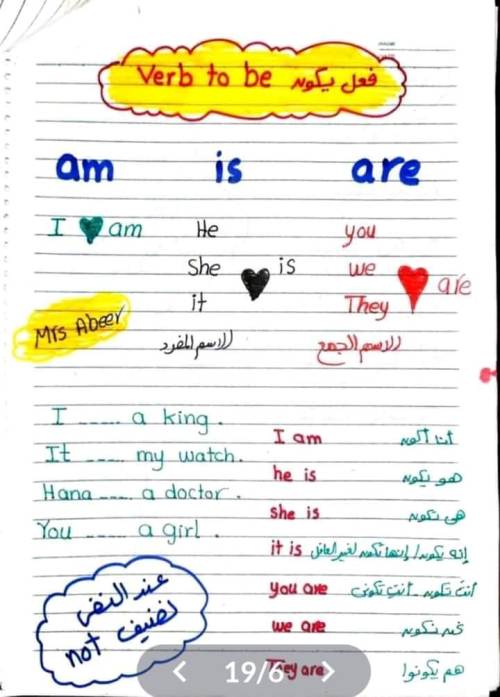 Verb to be فعل يكون
am is are
I am
He
She is
it
you
we are
They
Mrs Abeer
الاسم المفرد
الاسم الجمع
I ..... a king.
It ---- my watch.
Hana ---- a doctor.
You ----- a girl.
عند النفي
نضيف not
I am أنا أكون
he is هو يكون
she is هي تكون
it is إنه يكون / إنها تكون لغير العاقل
you are أنت تكون أنتِ تكوني
we are نحن نكون
They are هم يكونوا
19/6